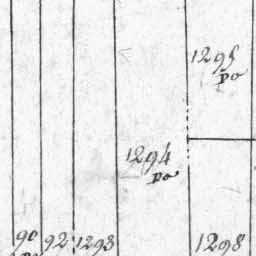 1295
po
1294
po
90 92 1293 1298
po